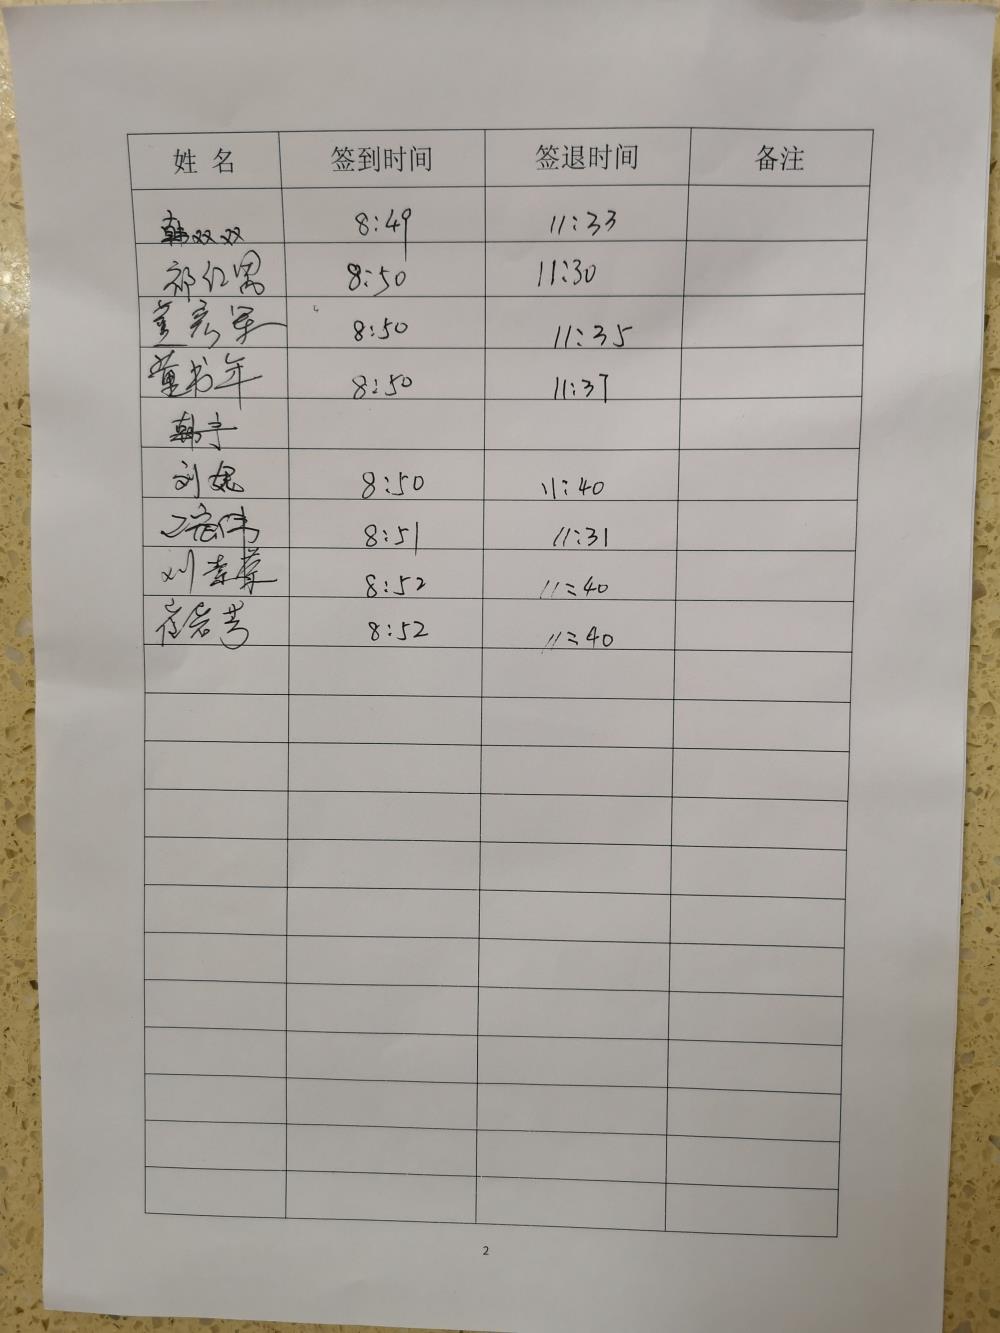 姓 名 签到时间 签退时间 备注
韩双双 8:49 11:33
祁仁男 8:50 11:30
董彦军 8:50 11:35
董书年 8:50 11:37
刘媿 8:50 11:40
8:51 11:31
刘 8:52 11:40
崔岩芳 8:52 11:40
2